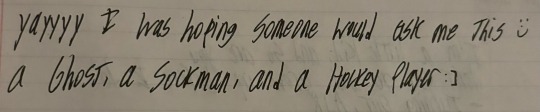 yayyyy I was hoping someone would ask me this :)
a Ghost, a Sockman, and a Hockey Player :]